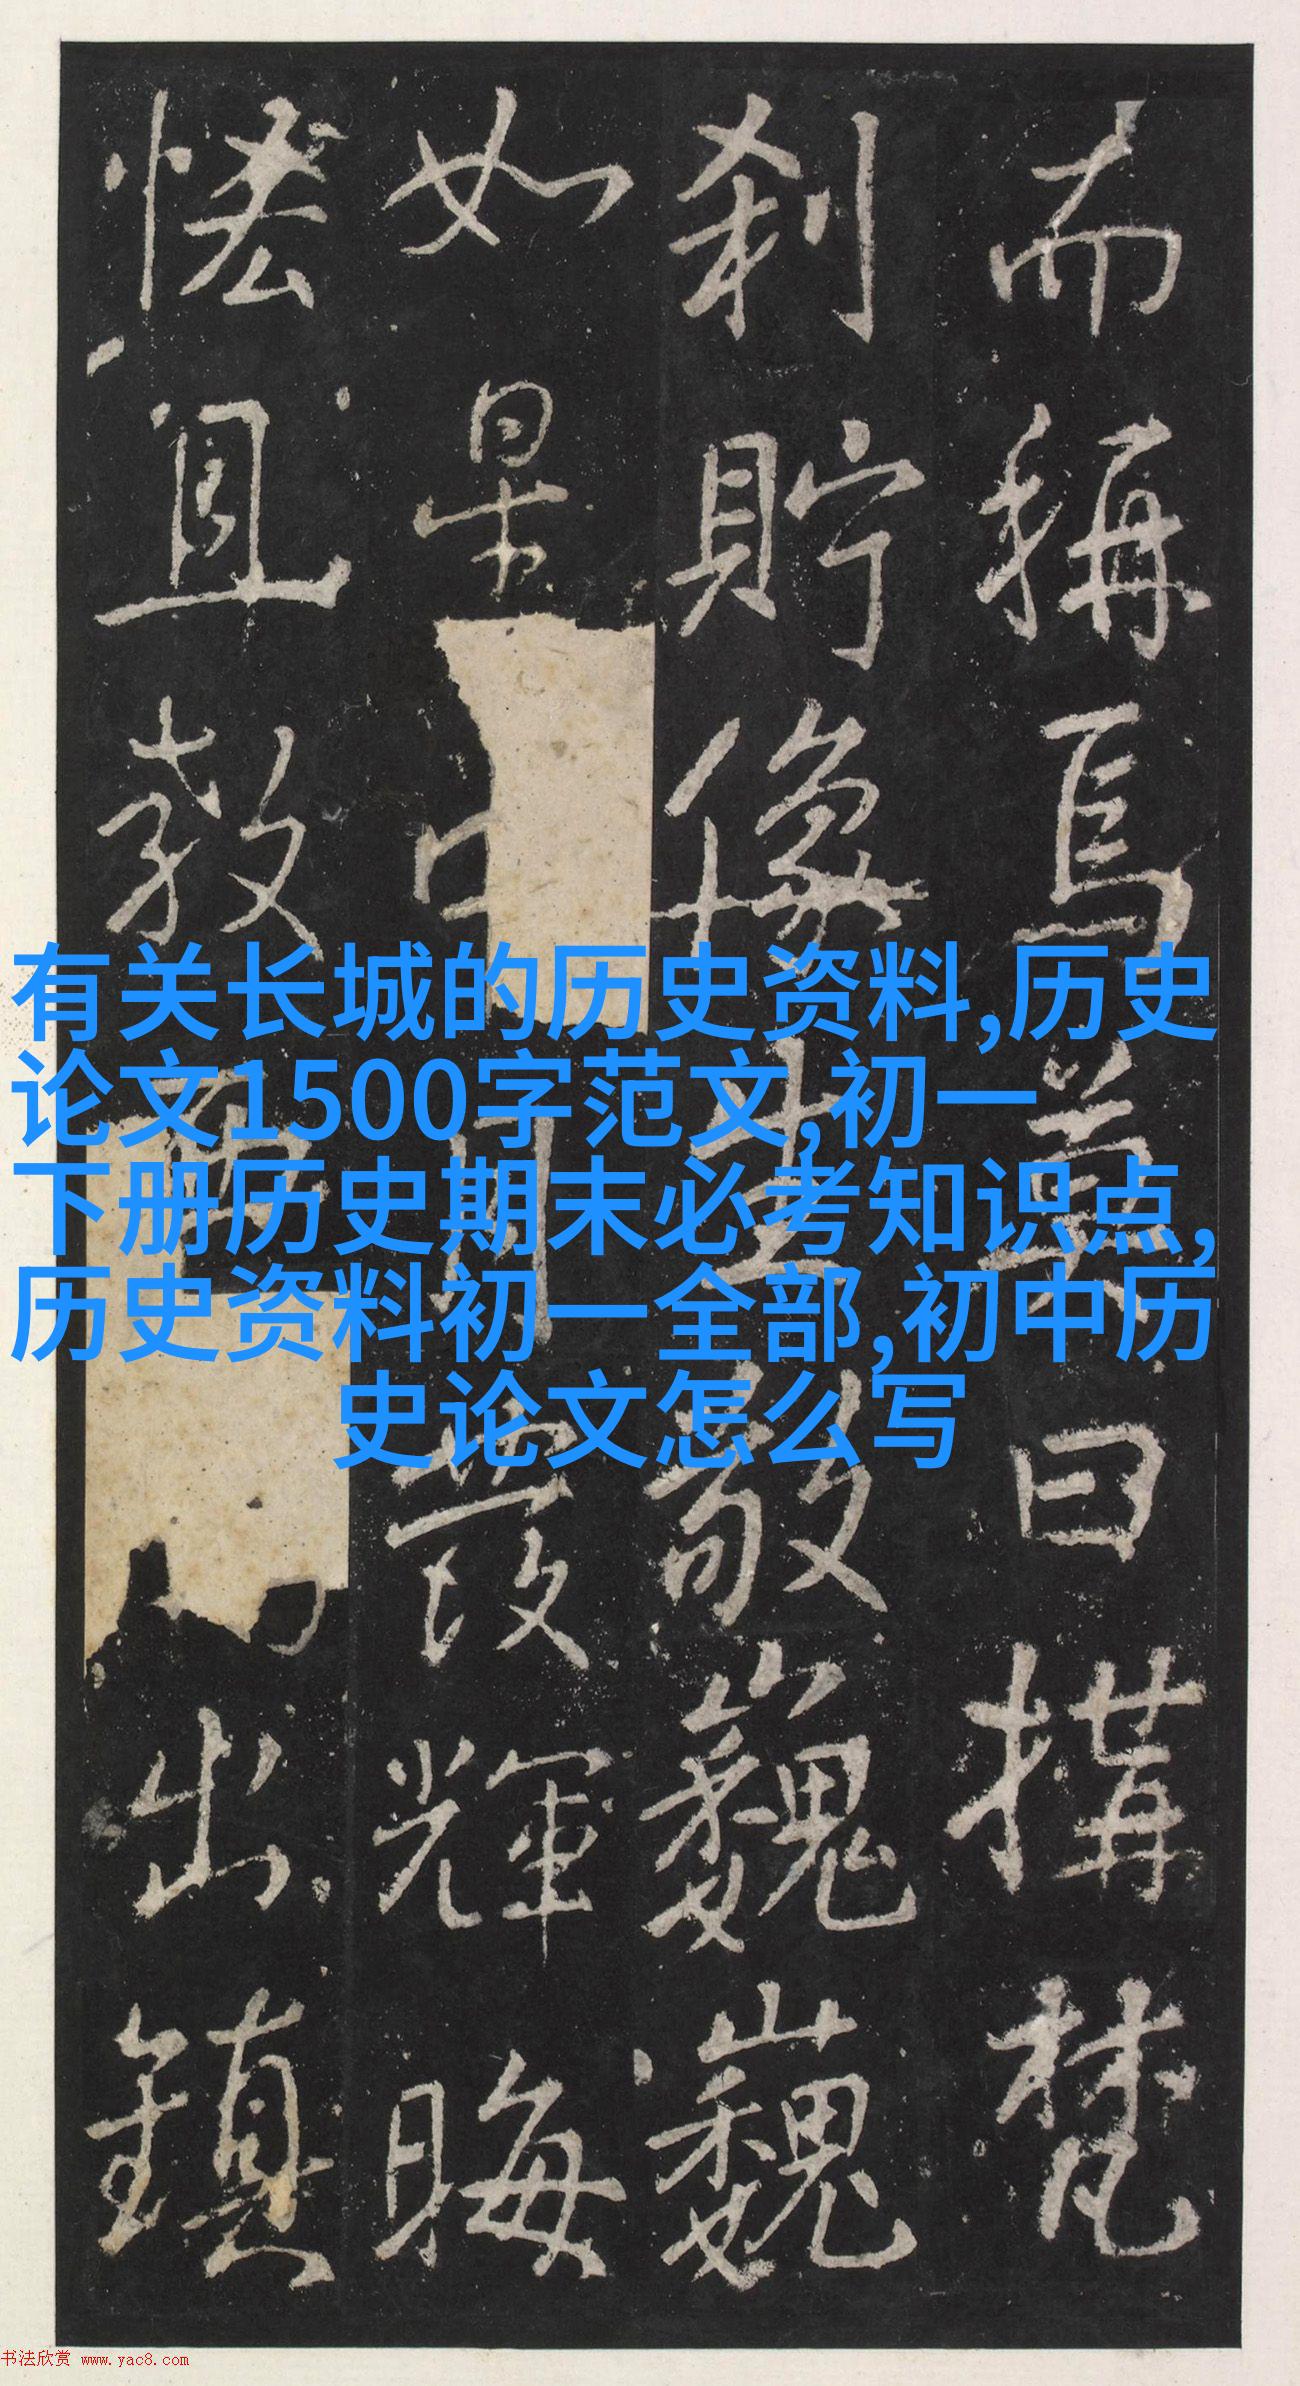 而稱焉曰搆梵
刹貯像敞巍巍
如月輝晦
且教出鎮
有关长城的历史资料,历史
论文1500字范文,初一
下册历史期末必考知识点,
历史资料初一全部,初中历
史论文怎么写
书法欣赏 www.yac8.com